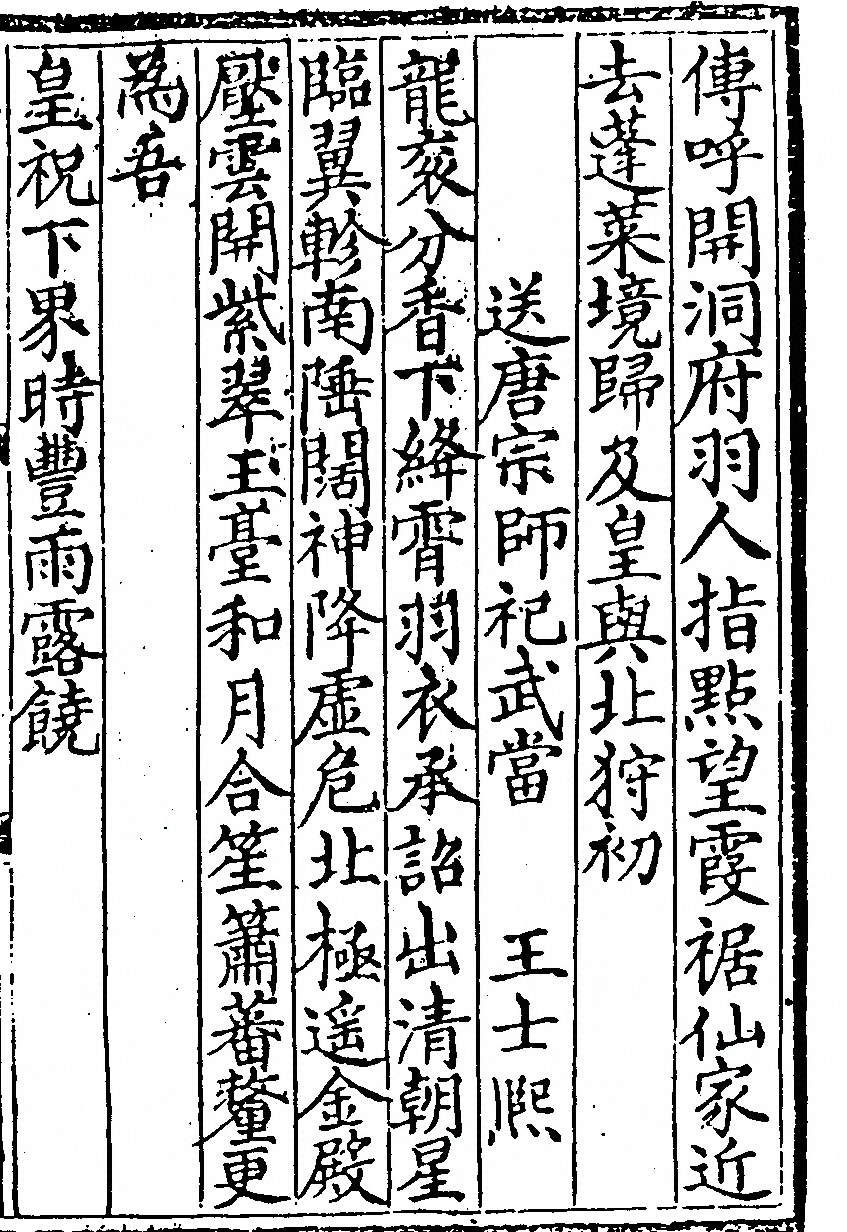 傳呼開洞府羽人指點望霞裾仙家近
去蓬萊境歸及皇輿北狩初
送唐宗師祀武當　王士熈
龍衮分香下絳霄羽衣承詔出清朝星
臨翼軫南陲闊神降虛危北極遥金殿
壓雲開紫翠玉臺和月合笙簫蕃釐更
為吾
皇祝下界時豐雨露饒